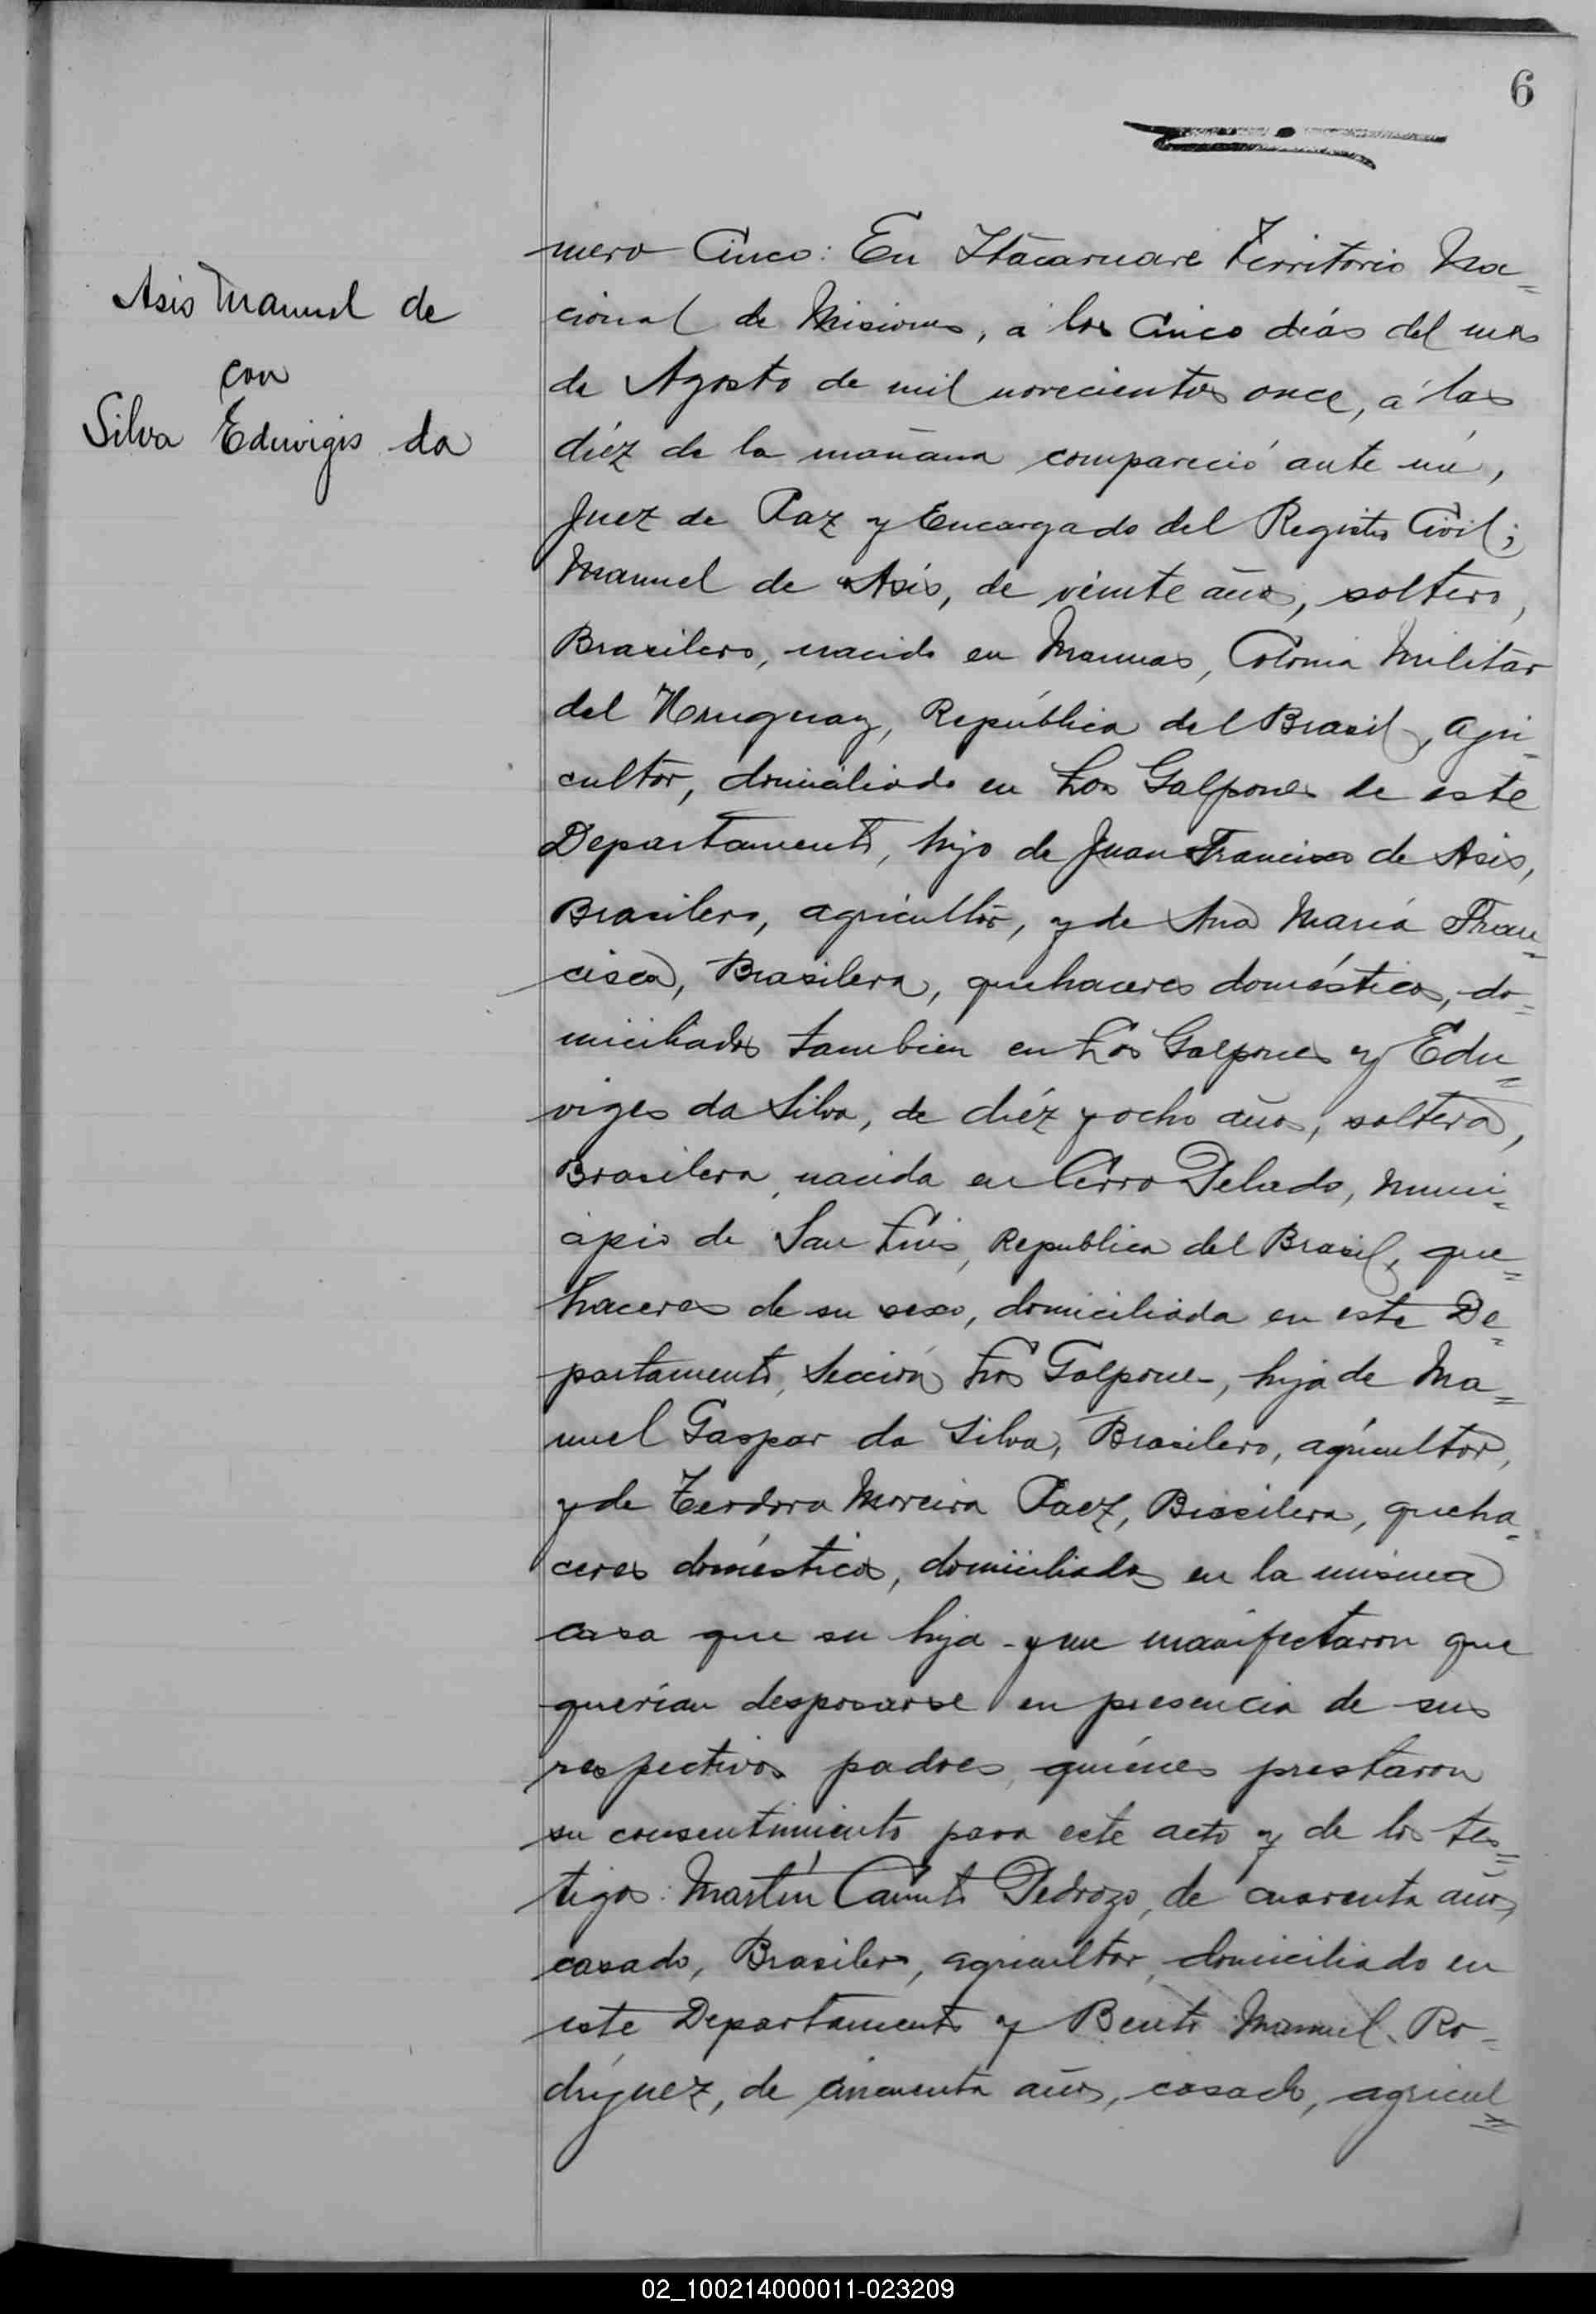 6
Asis Manuel de
con
Silva Eduvigis da
mero Cinco: En Itacaruaré Territorio Na=
cional de Misiones, á los Cinco días del mes
de Agosto de mil novecientos once, á las
diéz de la mañana compareció ante mí,
Juez de Paz y Encargado del Registro Civil;
Manuel de Asis, de veinte años, soltero,
Brasilero, nacido en Colonia Militar
del Uruguay, República del Brasil, agri=
cultor, domiciliado en Los Galpones de este
Departamento, hijo de Juan Francisco de Asis,
Brasilero, agricultor, y de Ana María Fran=
cisca, Brasilera, quehaceres domésticos, do=
miciliados tambien en Los Galpones y Edu=
viges da Silva, de diéz y ocho años, soltera,
Brasilera, nacida en Cerro Pelado, Muni=
cipio de San Luis, Republica del Brasil, que=
haceres de su sexo, domiciliada en este De=
partamento, Sección Los Galpones, hija de Ma=
nuel Gaspar da Silva, Brasilero, agricultor,
y de Teodora Moreira Paez, Brasilera, queha=
ceres domésticos, domiciliados en la misma
casa que su hija y me manifectaron que
querían desposarse en presencia de sus
respectivos padres, quiénes prestaron
su consentimiento para este acto y de los tes=
tigos: Martín Canuto Pedrozo, de cuarenta años,
casado, Brasilero, agricultor, domiciliado en
este Departamento y Bento Manuel Ro=
dríguez, de cincuenta años, casado, agricul=
02_100214000011-023209